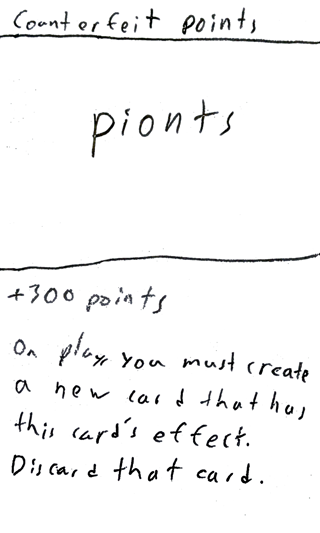 Counterfeit points
pionts
+300 points
On play, you must create
a new card that has
this card's effect.
Discard that card.